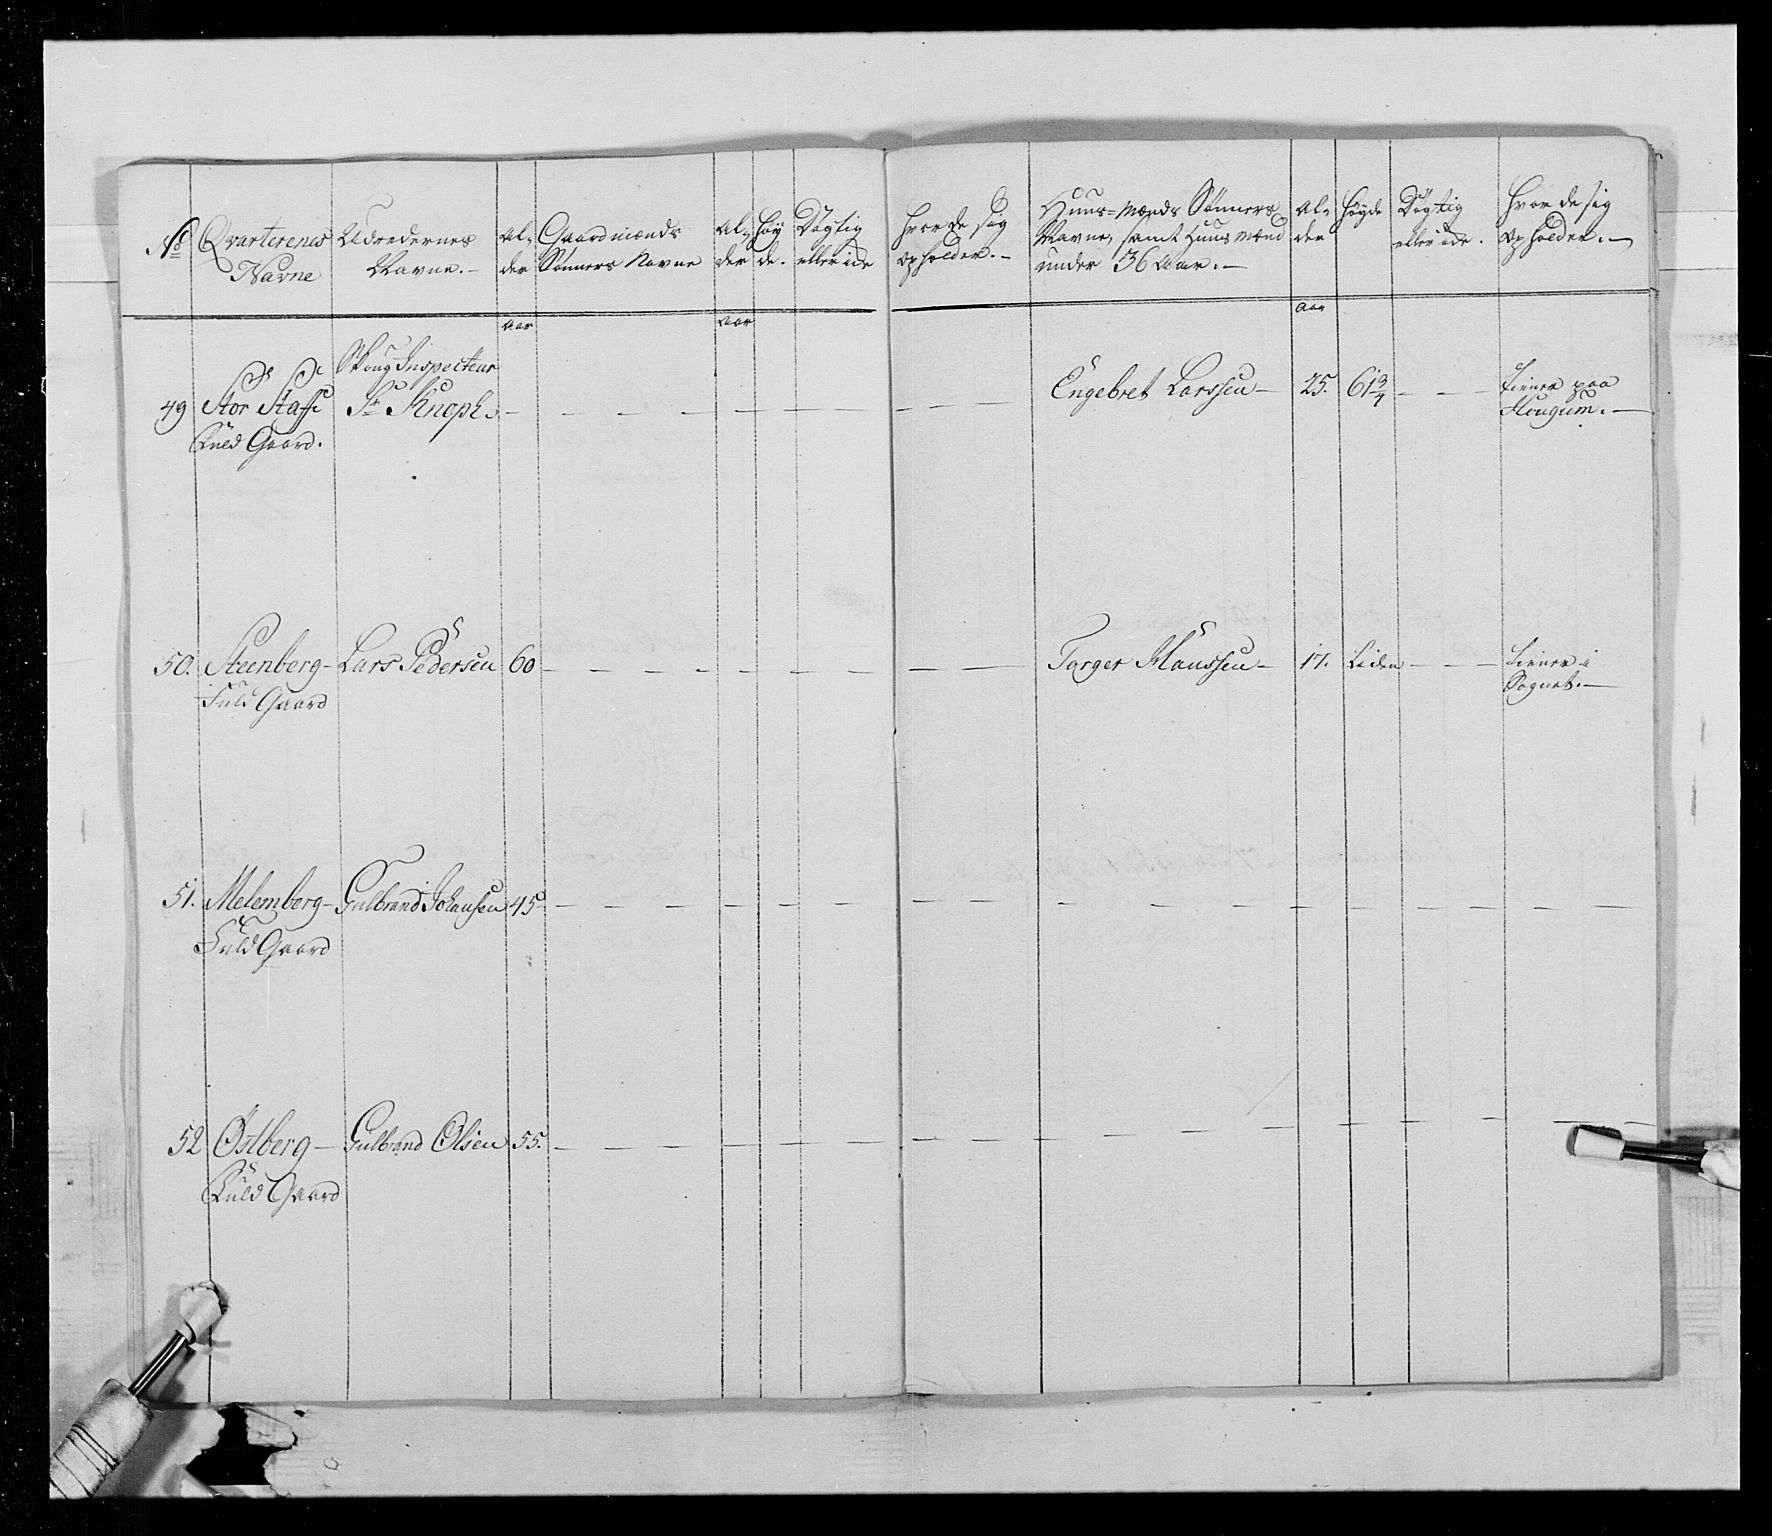 No
Qvarterenes Navne
Udredernes Navne.
Al- der
Gaardmænds Sønners Navne
Al- der
Høy de.
Dÿgtig eller icke
Hvor de sig opholder.
Huus-Mænds Sønners Navne, samt Huus Mænd under 36 Aar.
Al- der
Høyde
Dÿgtig eller icke.
Hvor de sig opholder.
Aar
Aar
Aar
49 Stor Staffe Fuld Gaard.
Skoug Inspecteur Sr Knoph
Engebret Larssen 25. 61 3/4
tiener paa Hougum.
50. Steenberg Fuld Gaard
Lars Pedersen 60
Torger Hanssen 17. Liden
tiener i Sognet.
51. Melemberg Fuld Gaard
Gulbrand Johansen 45
52 Østberg Fuld Gaard
Gulbrand Olsen 55.